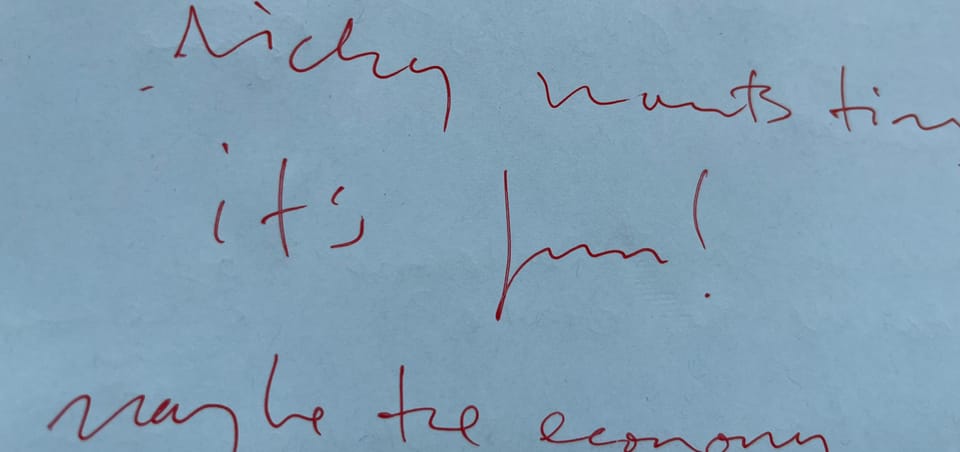 Nicky wants
it's fun!
maybe the economy